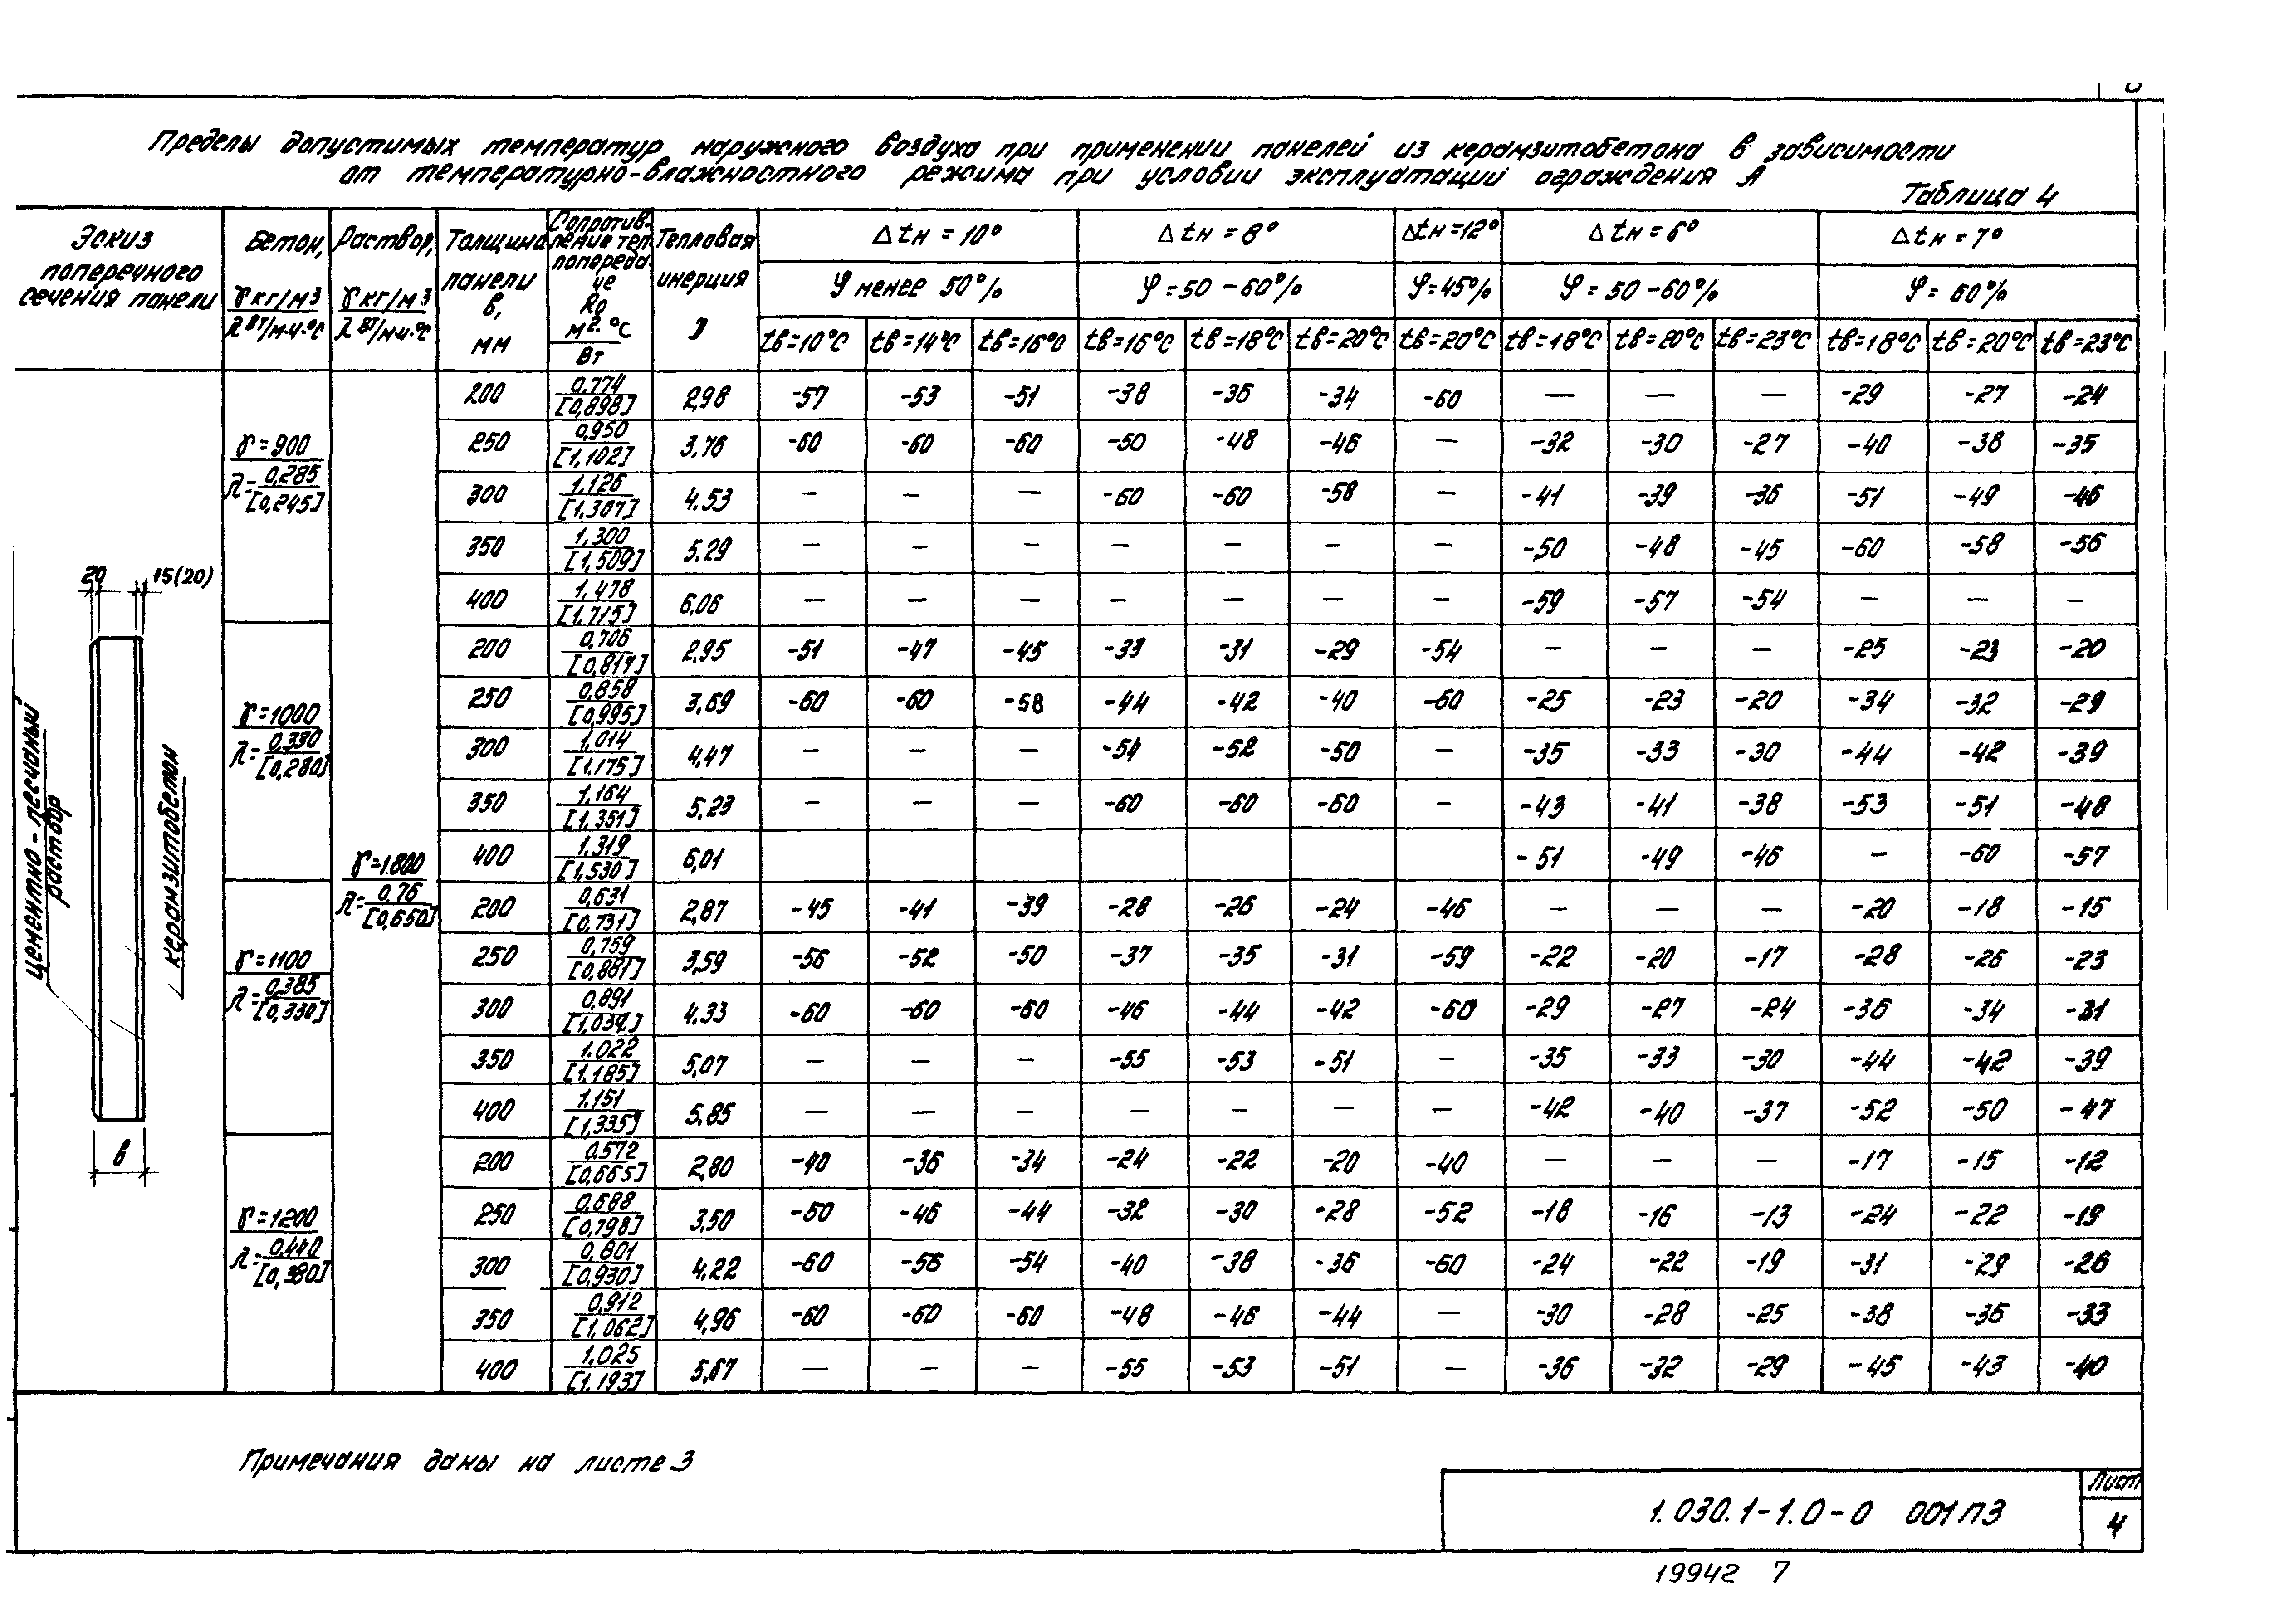 Пределы допустимых температур наружного воздуха при применении панелей из керамзитобетона в зависимости
от температурно-влажностного режима при условии эксплуатации ограждения А
Таблица 4
Эскиз поперечного сечения панели
Бетон, γ кг/м3 / λ Вт/м·ч·°С
Раствор, γ кг/м3 / λ Вт/м·ч·°С
Толщина панели в, мм
Сопротив-ление теп-лопереда-че Ro м2·°С / Вт
Тепловая инерция D
Δtн = 10° Δtн = 8° Δtн = 12° Δtн = 6° Δtн = 7°
φ менее 50% φ = 50 - 60% φ = 45% φ = 50 - 60% φ = 60%
tв=10°С tв=14°С tв=16°С tв=16°С tв=18°С tв=20°С tв=20°С tв=18°С tв=20°С tв=23°С tв=18°С tв=20°С tв=23°С
20 15(20)
цементно-песчаный раствор
керамзитобетон
в
γ=1800 λ=0,76/[0,650]
γ=900 λ=0,285/[0,245]
200 0,774/[0,898] 2,98 -57 -53 -51 -38 -36 -34 -60 — — — -29 -27 -24
250 0,950/[1,102] 3,76 -60 -60 -60 -50 -48 -46 — -32 -30 -27 -40 -38 -35
300 1.126/[1,307] 4.53 — — — -60 -60 -58 — -41 -39 -36 -51 -49 -46
350 1,300/[1,509] 5.29 — — — — — — — -50 -48 -45 -60 -58 -56
400 1,478/[1,715] 6,06 — — — — — — — -59 -57 -54 — — —
γ=1000 λ=0,330/[0,280]
200 0,706/[0,817] 2,95 -51 -47 -45 -33 -31 -29 -54 — — — -25 -23 -20
250 0,858/[0,995] 3,69 -60 -60 -58 -44 -42 -40 -60 -25 -23 -20 -34 -32 -29
300 1,014/[1.175] 4,47 — — — -54 -52 -50 — -35 -33 -30 -44 -42 -39
350 1,164/[1,351] 5,23 — — — -60 -60 -60 — -43 -41 -38 -53 -51 -48
400 1.319/[1,530] 6,01 -51 -49 -46 — -60 -57
γ=1100 λ=0,385/[0,330]
200 0,631/[0,731] 2,87 -45 -41 -39 -28 -26 -24 -46 — — — -20 -18 -15
250 0,759/[0,881] 3,59 -56 -52 -50 -37 -35 -31 -59 -22 -20 -17 -28 -26 -23
300 0,891/[1,034] 4.33 -60 -60 -60 -46 -44 -42 -60 -29 -27 -24 -36 -34 -31
350 1.022/[1,185] 5,07 — — — -55 -53 -51 — -35 -33 -30 -44 -42 -39
400 1.151/[1,335] 5.85 — — — — — — — -42 -40 -37 -52 -50 -47
γ=1200 λ=0,440/[0,380]
200 0.572/[0,665] 2,80 -40 -36 -34 -24 -22 -20 -40 — — — -17 -15 -12
250 0,688/[0,798] 3,50 -50 -46 -44 -32 -30 -28 -52 -18 -16 -13 -24 -22 -19
300 0,801/[0,930] 4,22 -60 -56 -54 -40 -38 -36 -60 -24 -22 -19 -31 -29 -26
350 0,912/[1,062] 4,96 -60 -60 -60 -48 -46 -44 — -30 -28 -25 -38 -36 -33
400 1,025/[1,193] 5,67 — — — -55 -53 -51 — -36 -32 -29 -45 -43 -40
Примечания даны на листе 3
1.030.1-1.0-0 001ПЗ
Лист
4
19942 7